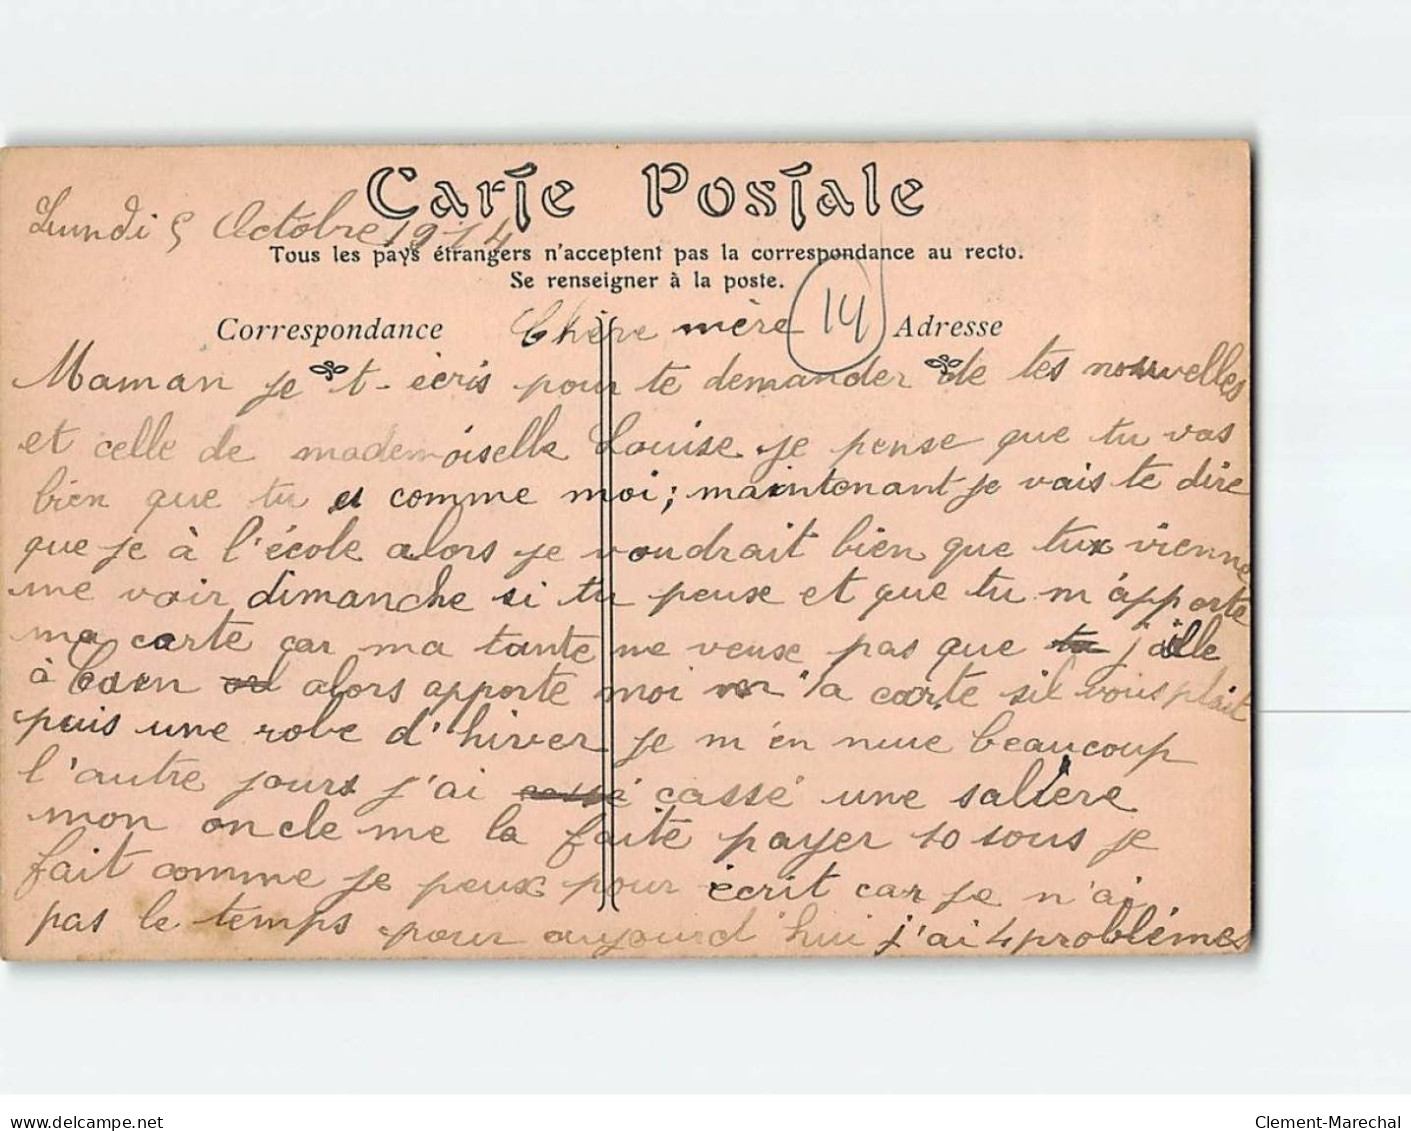 Carte Postale
Lundi 5 Octobre 1914
Tous les pays étrangers n'acceptent pas la correspondance au recto.
Se renseigner à la poste.
Correspondance
Adresse
14
Chère mère
Maman je t-écris pour te demander de tes nouvelles
et celle de mademoiselle Louise je pense que tu vas
bien que tu et comme moi; maintenant je vais te dire
que je à l'école alors je voudrait bien que tu vienne
me voir dimanche si tu peuse et que tu m'apporte
ma carte car ma tante me veuse pas que j'aille
à Caen alors apporte moi la carte sil vous plait
puis une robe d'hiver je m'en nuie beaucoup
l'autre jours j'ai cassé une saliere
mon oncle me la faite payer 10 sous je
fait comme je peux pour écrit car je n'ai
pas le temps pour aujourd'hui j'ai 4 problémes
delcampe.net
Clement-Marechal